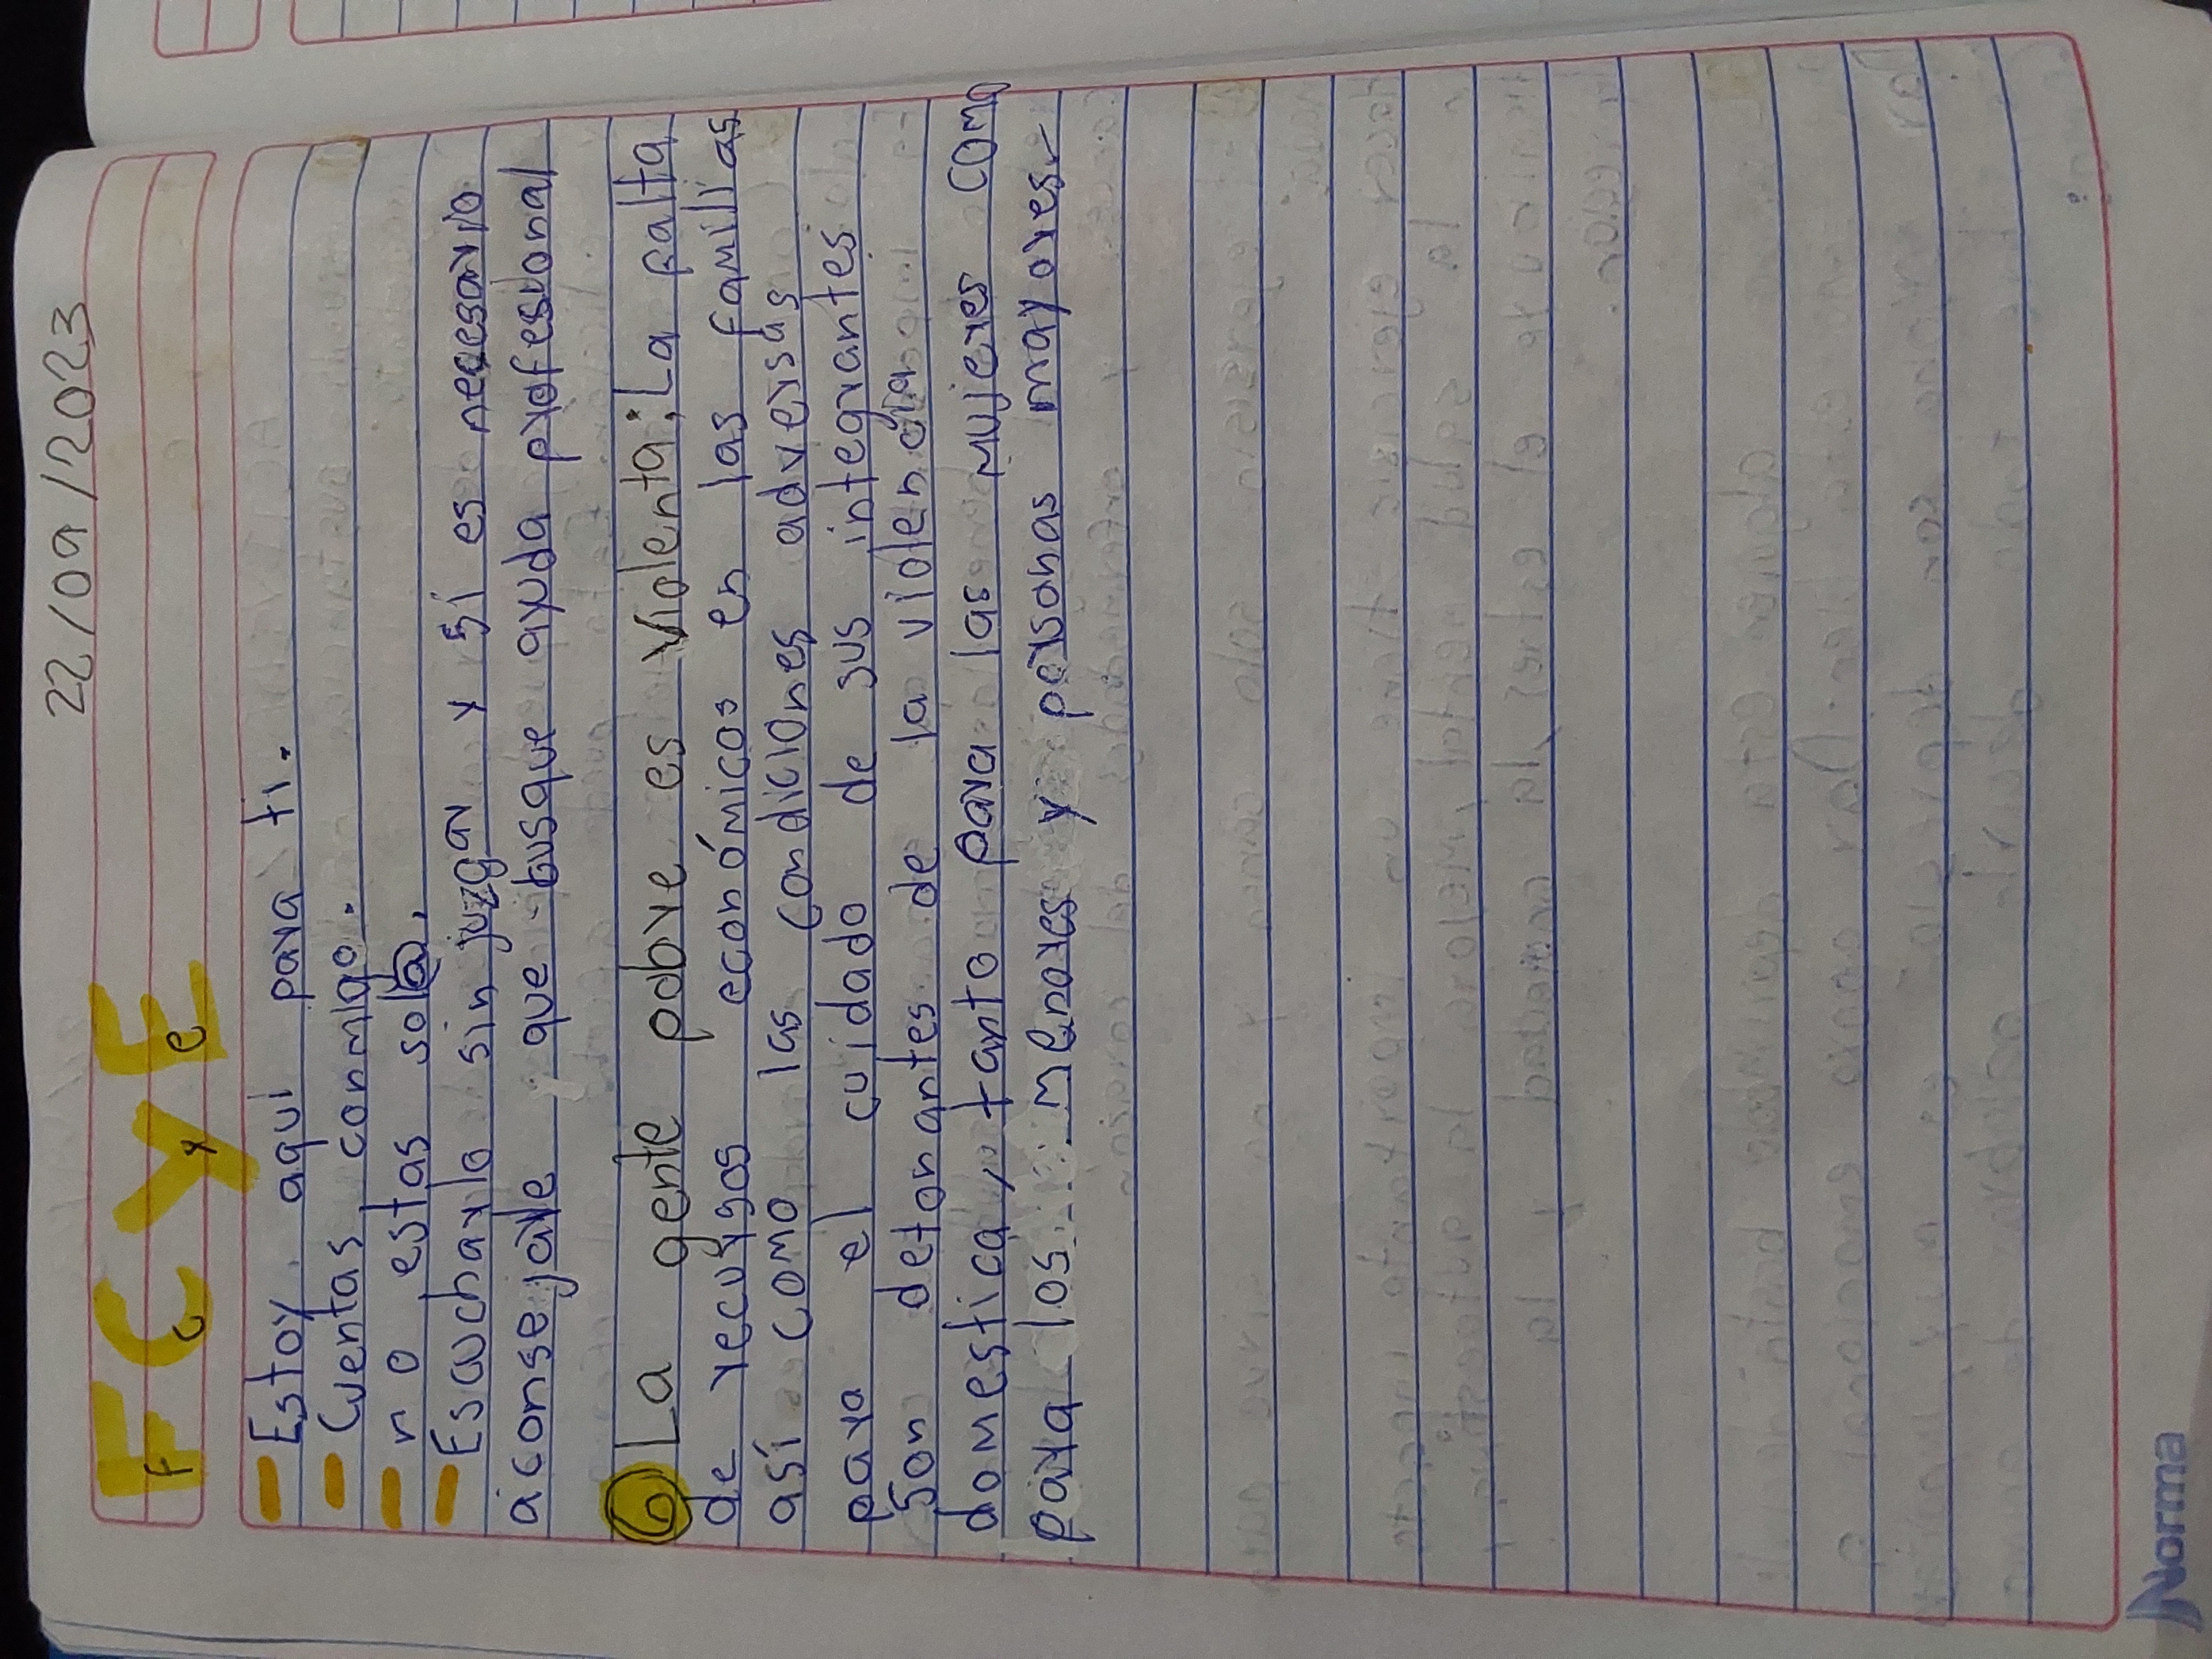 22/09/2023
FCYE
F C y e
- Estoy aquí para ti.
- Cuentas conmigo.
- no estas sol@.
- Escucharlo sin juzgar y sí es necesario
aconsejarle que busque ayuda profesional
6 La gente pobre es violenta; La falta
de recursos económicos en las familias
así como las condiciones adversas
para el cuidado de sus integrantes
son detonantes de la violencia
domestica, tanto para las mujeres como
para los menores y personas mayores.
Norma